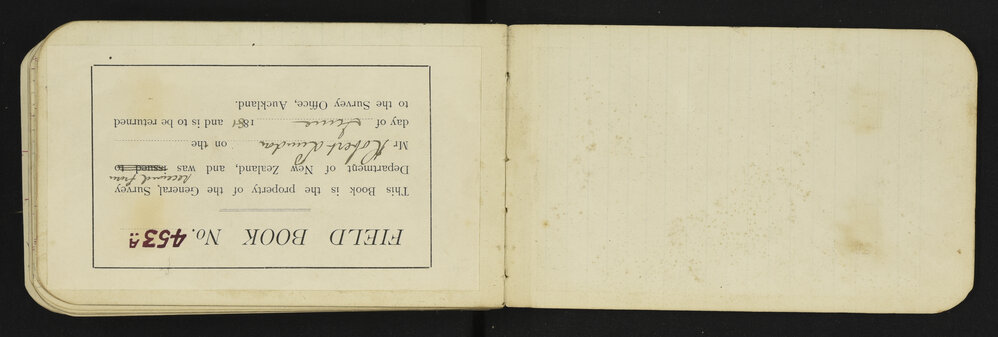 FIELD BOOK No. 453A
This Book is the property of the General Survey
received from
Department of New Zealand, and was issued to
Mr Robert Lundon on the
day of June 188 and is to be returned
to the Survey Office, Auckland.